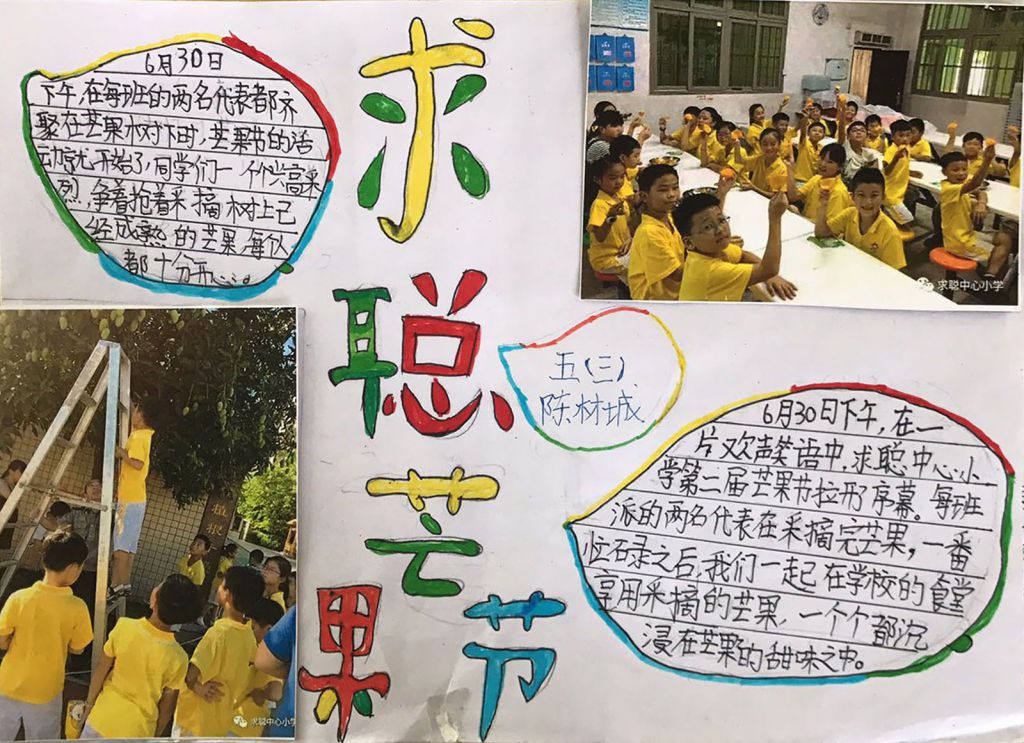 求聪芒果节
6月30日
下午,在每班的两名代表都齐
聚在芒果树下时,芒果节的活
动就开始了,同学们一个个兴高采
烈,争着抢着采摘树上已
经成熟的芒果,每个人
都十分开心。
五(三)
陈林城
6月30日下午,在一
片欢声笑语中,求聪中心小
学第二届芒果节拉开了序幕。每班
派的两名代表在采摘完芒果,一番
忙碌之后,我们一起在学校的食堂
享用采摘的芒果,一个个都沉
浸在芒果的甜味之中。
求聪中心小学
求聪中心小学